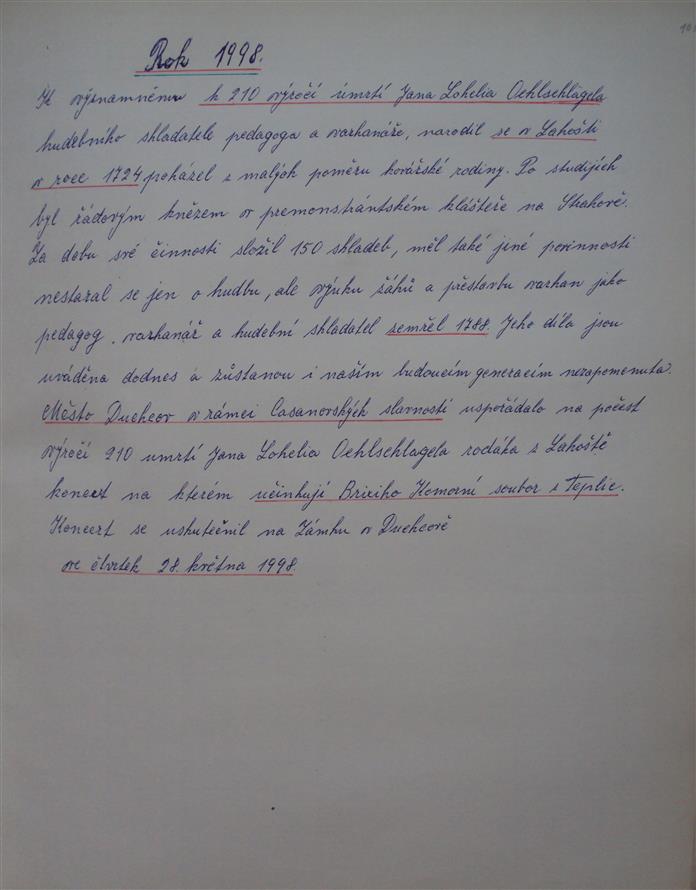 Rok 1998.
K významnému k 210 výročí úmrtí Jana Lohelia Oehlschlägela
hudebního skladatele pedagoga a varhanáře, narodil se v Lahošti
v roce 1724 pocházel z malých poměru kovářské rodiny. Po studijích
byl řádovým knězem v premonstrántském klášteře na Strahově.
Za dobu své činnosti složil 150 skladeb, měl také jiné povinnosti
nestaral se jen o hudbu, ale výuku žáků a přestavbu varhan jako
pedagog, varhanář a hudební skladatel zemřel 1788. Jeho díla jsou
uváděna dodnes a zůstanou i naším budoucím generacím nezapomenuta.
Město Duchcov v rámci Casanovských slavností uspořádalo na počest
výročí 210 umrtí Jana Lohelia Oehlschlagela rodáka z Lahoště
koncert na kterém učinkují Brixiho Komorní soubor z Teplic.
Koncert se uskutečnil na Zámku v Duchcově
ve čtvrtek 28. května 1998.